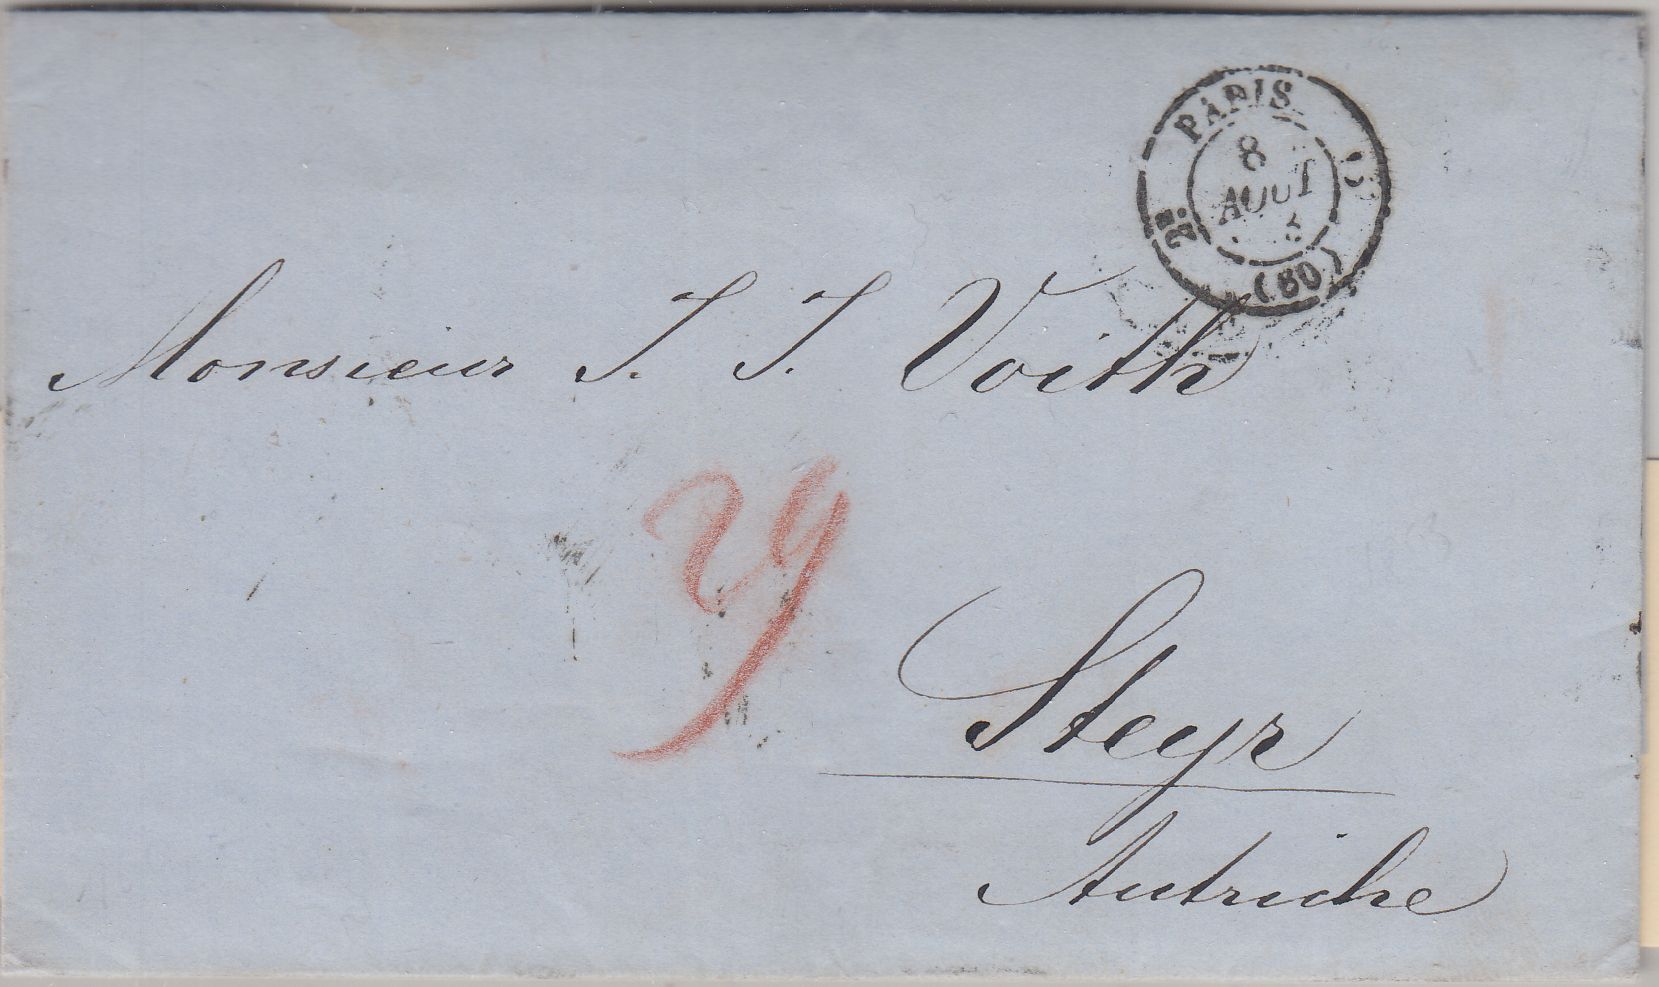 PARIS
2E
8
AOUT
(60)
Monsieur J. J. Voith
29
Steyr
Autriche